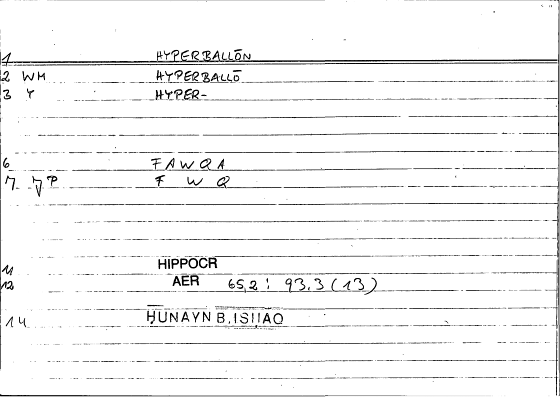 1 HYPERBALLŌN
2 WM HYPERBALLŌ
3 Y HYPER-
6 FAWQA
7 P F W Q
11 HIPPOCR
12 AER 65,2 : 93.3 (13)
14 ḤUNAYN B. ISḤAQ